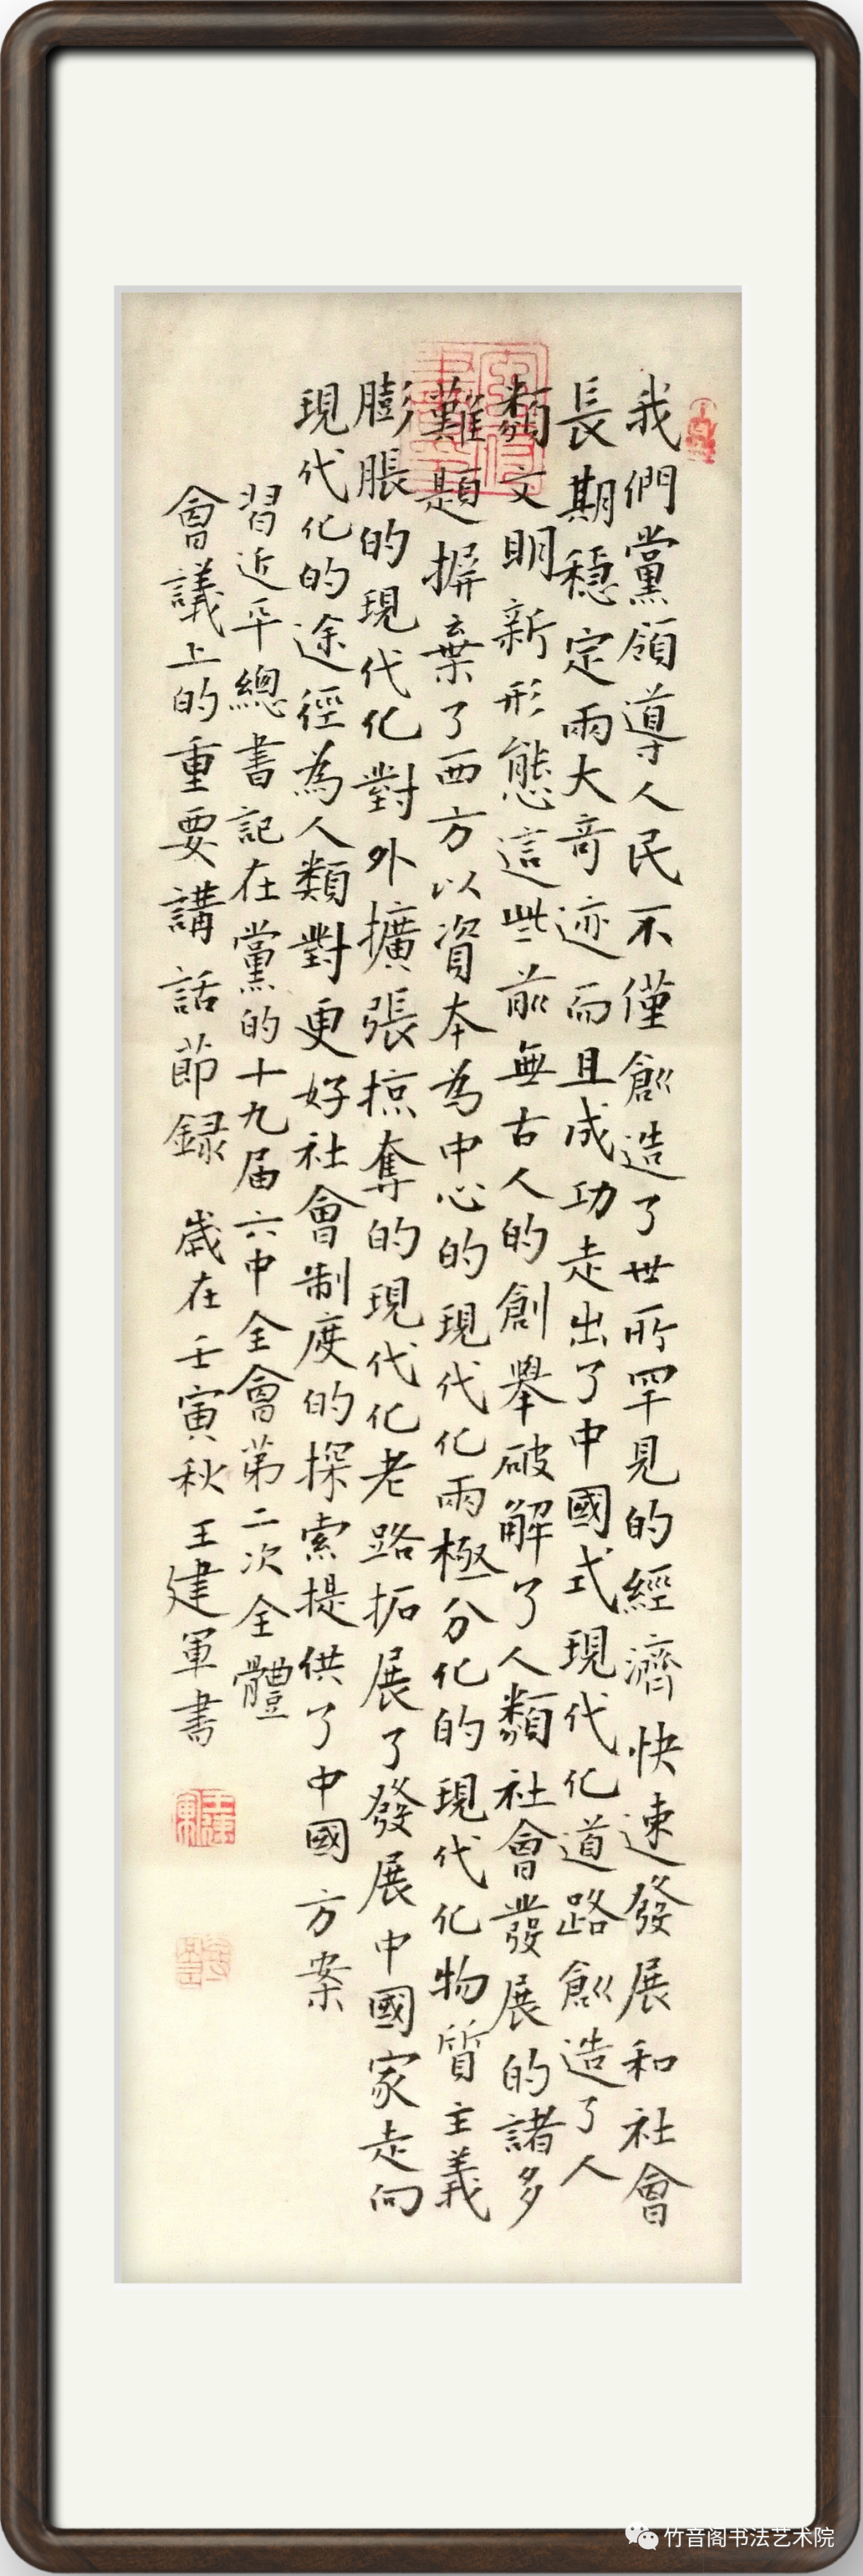 我們黨領導人民不僅創造了世所罕見的經濟快速發展和社會
長期穩定兩大奇迹而且成功走出了中國式現代化道路創造了人
類文明新形態這些前無古人的創舉破解了人類社會發展的諸多
難題摒棄了西方以資本為中心的現代化兩極分化的現代化物質主義
膨脹的現代化對外擴張掠奪的現代化老路拓展了發展中國家走向
現代化的途徑為人類對更好社會制度的探索提供了中國方案
習近平總書記在黨的十九届六中全會第二次全體
會議上的重要講話節録 歲在壬寅秋 王建軍書
王建軍
竹音阁书法艺术院